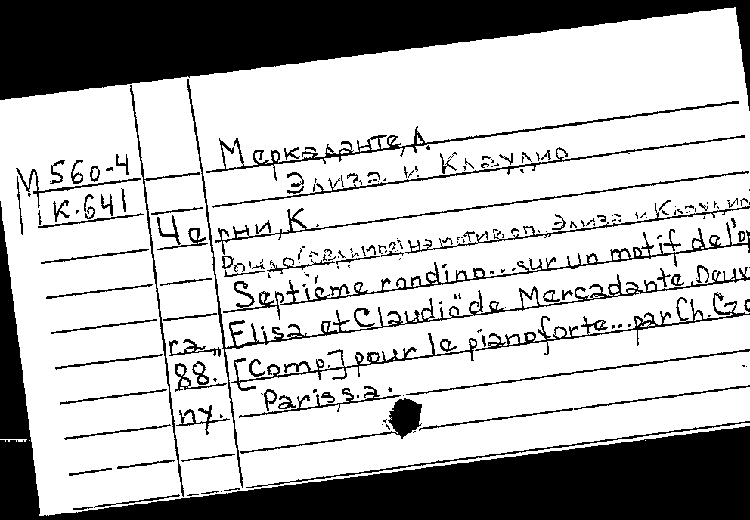 Меркаданте, А.
М 560-4
Элиза и Клаудио
К.641
Черни, К.
Рондо (седьмое) на мотив оп. „Элиза и Клаудио
Septiéme rondino...sur un motif de l'op
ra „Elisa et Claudio" de Mercadante. Oeuv
88. [Comp.] pour le pianoforte...par Ch. Cze
ny. Paris, s.a.